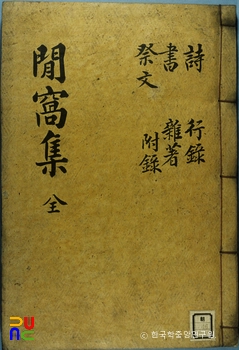 閒窩集 全
詩 行錄
書 雜著
祭文 附錄
ⓒ 한국학중앙연구원